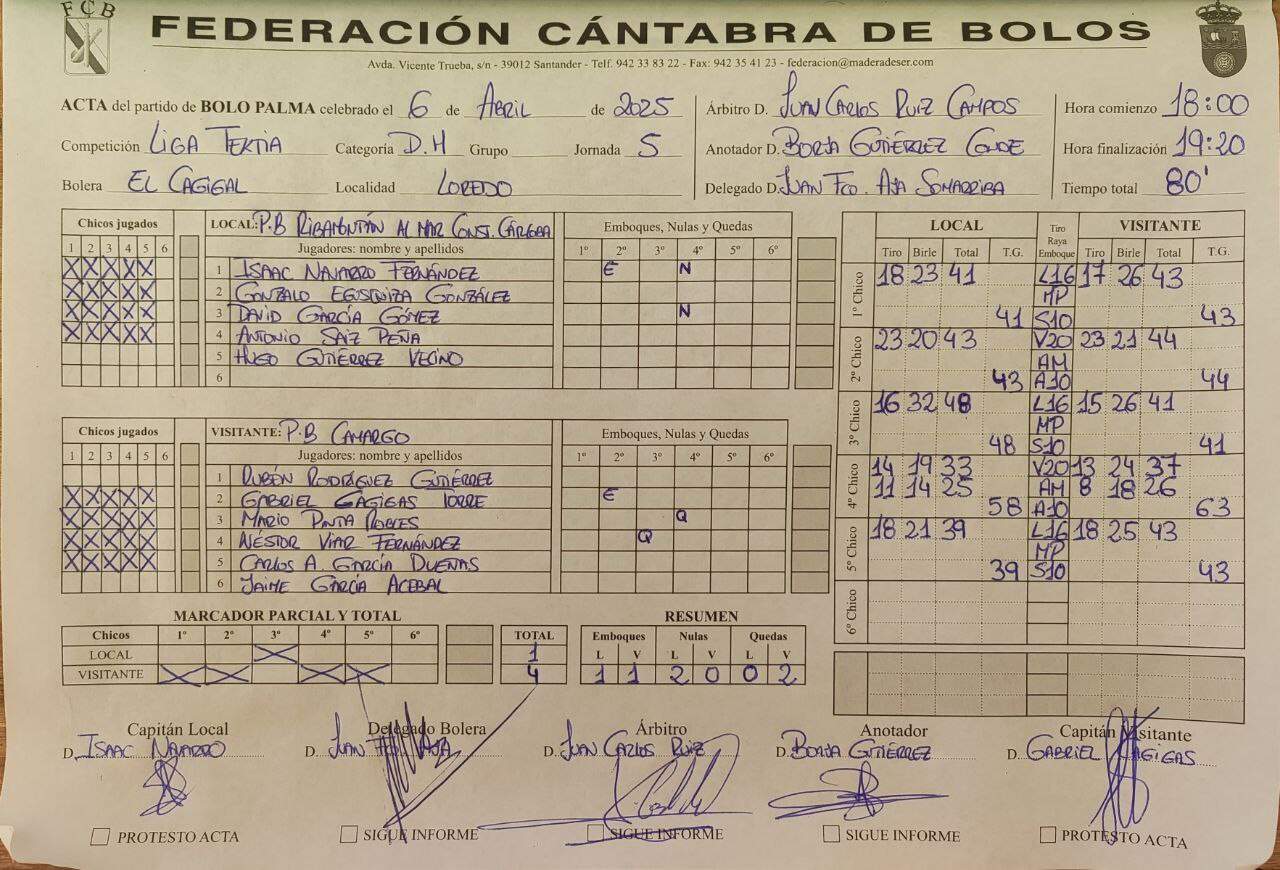 FCB
FEDERACIÓN CÁNTABRA DE BOLOS
Avda. Vicente Trueba, s/n - 39012 Santander - Telf. 942 33 83 22 - Fax: 942 35 41 23 - federacion@maderadeser.com
ACTA del partido de BOLO PALMA celebrado el 6 de ABRIL de 2025 Árbitro D. JUAN CARLOS RUIZ CAMPOS Hora comienzo 18:00
Competición LIGA TERTIA Categoría D.H Grupo Jornada 5 Anotador D. BORJA GUTIÉRREZ CONDE Hora finalización 19:20
Bolera EL CAGIGAL Localidad LOREDO Delegado D. JUAN FCO. AJA SOMARRIBA Tiempo total 80'
Chicos jugados LOCAL: P.B RIBAMONTÁN AL MAR CONST. CÁRCOBA Emboques, Nulas y Quedas
1 2 3 4 5 6 Jugadores: nombre y apellidos 1º 2º 3º 4º 5º 6º
X X X X X 1 ISAAC NAVARRO FERNÁNDEZ E N
X X X X X 2 GONZALO EGUSQUIZA GONZÁLEZ
X X X X X 3 DAVID GARCÍA GÓMEZ N
X X X X X 4 ANTONIO SAIZ PEÑA
5 HUGO GUTIÉRREZ VECINO
6
Chicos jugados VISITANTE: P.B CAMARGO Emboques, Nulas y Quedas
1 2 3 4 5 6 Jugadores: nombre y apellidos 1º 2º 3º 4º 5º 6º
1 RUBÉN RODRÍGUEZ GUTIÉRREZ
X X X X X 2 GABRIEL CAGIGAS TORRE E
X X X X X 3 MARIO PINTA ROBLES Q
X X X X X 4 NÉSTOR VIAR FERNÁNDEZ Q
X X X X X 5 CARLOS A. GARCÍA DUEÑAS
6 JAIME GARCÍA ACEBAL
LOCAL Tiro Raya Emboque VISITANTE
Tiro Birle Total T.G. Tiro Birle Total T.G.
1º Chico 18 23 41 L16 17 26 43
MP
41 S10 43
2º Chico 23 20 43 V20 23 21 44
AM
43 A10 44
3º Chico 16 32 48 L16 15 26 41
MP
48 S10 41
4º Chico 14 19 33 V20 13 24 37
11 14 25 AM 8 18 26
58 A10 63
5º Chico 18 21 39 L16 18 25 43
MP
39 S10 43
6º Chico
MARCADOR PARCIAL Y TOTAL
Chicos 1º 2º 3º 4º 5º 6º TOTAL
LOCAL X 1
VISITANTE X X X X 4
RESUMEN
Emboques Nulas Quedas
L V L V L V
1 1 2 0 0 2
Capitán Local Delegado Bolera Árbitro Anotador Capitán Visitante
D. ISAAC NAVARRO D. JUAN FCO. AJA D. JUAN CARLOS RUIZ D. BORJA GUTIÉRREZ D. GABRIEL CAGIGAS
PROTESTO ACTA SIGUE INFORME SIGUE INFORME SIGUE INFORME PROTESTO ACTA